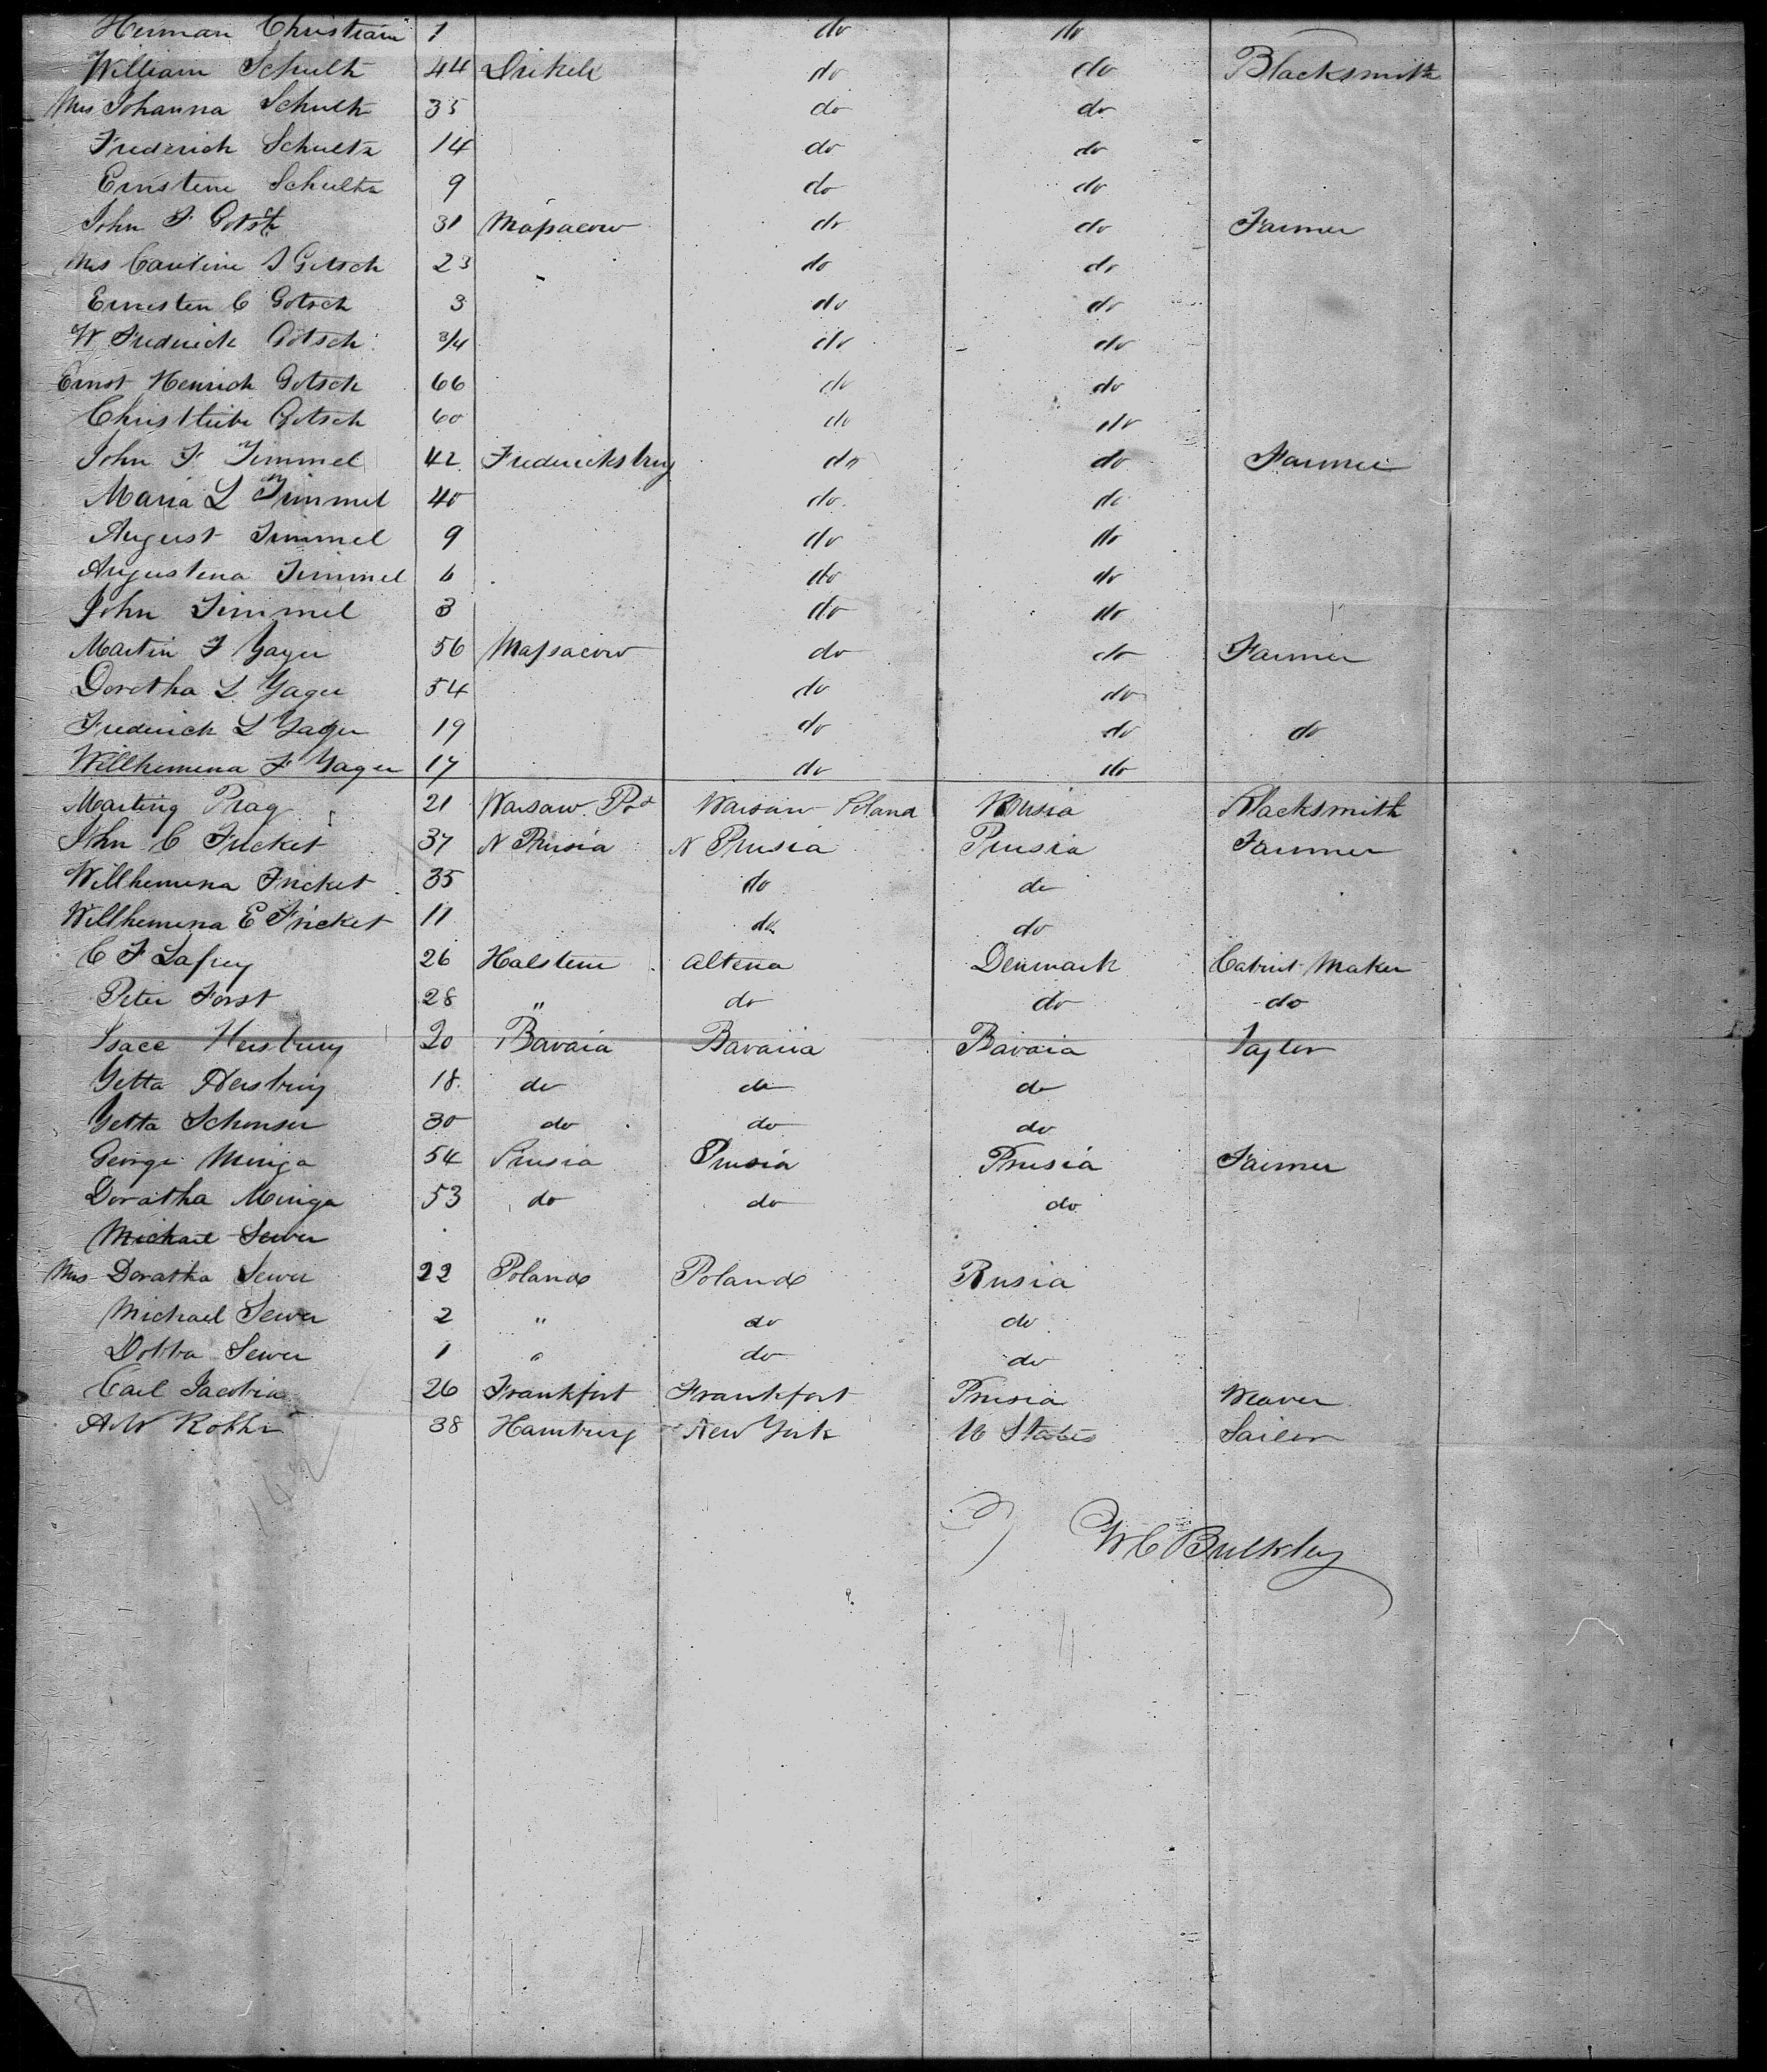 Herman Christian 1 do do
William Schultz 44 do do Blacksmith
Mrs Johanna Schultz 35 do do
Frederich Schultz 14 do do
Ernstine Schultz 9 do do
John F Gotsch 31 Massacow do do Farmer
Mrs Caroline S Gotsch 23 do do
Ernesten C Gotsch 3 do do
W Frederick Gotsch 3/4 do do
Ernst Henrich Gotsch 66 do do
Christliebe Gotsch 60 do do
John F Timmel 42 Fredericksburg do do Farmer
Maria L Timmel 40 do do
August Timmel 9 do do
Augustena Timmel 6 do do
John Timmel 3 do do
Martin F Yager 56 Massacow do do Farmer
Doretha L Yager 54 do do
Frederich L Yager 19 do do do
Willhemena F Yager 17 do do
Marting Prag 21 Warsaw Warsaw Poland Rusia Blacksmith
John C Fricket 37 N Prusia N Prusia Prusia Farmer
Willhemena Fricket 35 do do
Willhemena E Fricket 11 do do
C F Lafrey 26 Holstein Altena Denmark Cabinet Maker
Peter Forst 28 " do do do
Isace Hersburg 20 Bavaia Bavaria Bavaia Taylor
Yetta Hersburg 18 do do do
Yetta Schonser 30 do do do
George Minga 54 Prusia Prusia Prusia Farmer
Doratha Minga 53 do do do
Michael Sewer
Mrs Doratha Sewer 22 Poland Poland Rusia
Michael Sewer 2 " do do
Dobba Sewer 1 " do do
Carl Jacobia 26 Frankfort Frankfort Prusia Weaver
A W 38 Hamburg New York U States Sailor
W C Bulkley